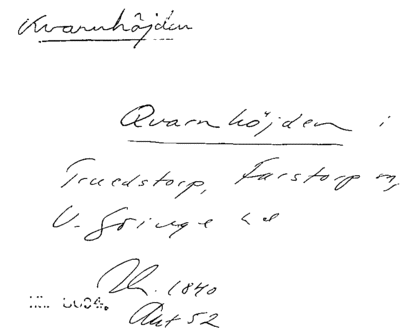 Kvarnhöjden
Qvarnhöjden i
Truedstorp, Farstorp
V. Göinge hd
1840
Akt 52